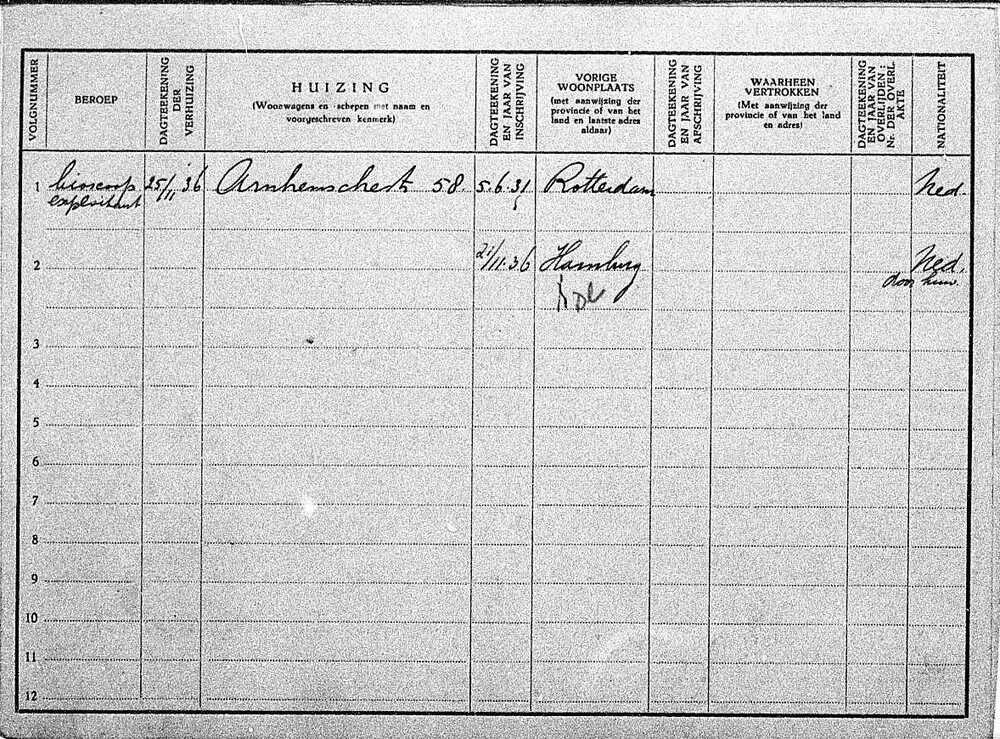 VOLGNUMMER
BEROEP
DAGTEEKENING
DER
VERHUIZING
HUIZING
(Woonwagens en schepen met naam en
voorgeschreven kenmerk)
DAGTEEKENING
EN JAAR VAN
INSCHRIJVING
VORIGE
WOONPLAATS
(met aanwijzing der
provincie of van het
land en laatste adres
aldaar)
DAGTEEKENING
EN JAAR VAN
AFSCHRIJVING
WAARHEEN
VERTROKKEN
(Met aanwijzing der
provincie of van het land
en adres)
DAGTEEKENING
EN JAAR VAN
OVERLIJDEN;
Nr. DER OVERL
AKTE
NATIONALITEIT
1 bioscoop 25/11 '36 58. 5.6.31 Rotterdam Ned.
exploitant
2 21/11.36 Hamburg Ned.
door huw.
3
4
5
6
7
8
9
10
11
12